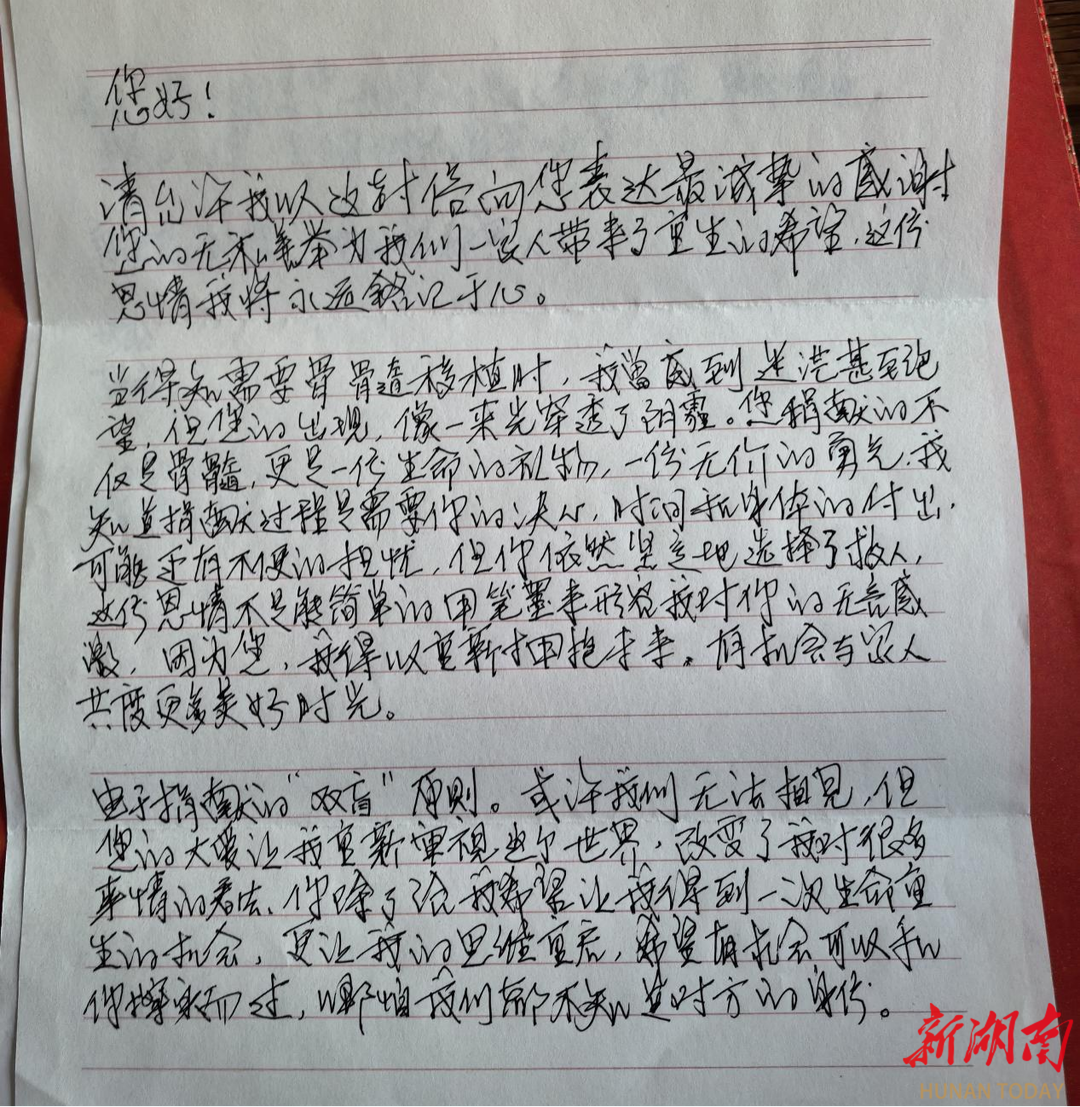 您好!
请允许我以这封信向您表达最诚挚的感谢
您的无私善举为我们一家人带来了重生的希望,这份
恩情我将永远铭记于心。
当得知需要骨骨遣移植时,我曾感到迷茫甚至绝
望,但您的出现,像一束光穿透了阴霾。您捐献的不
仅是骨髓,更是一份生命的礼物,一份无价的勇气,我
知道捐献过程是需要你的决心,时间和身体的付出,
可能还有不便的担忧,但你依然坚定地选择了救人,
这份恩情不是能简单的用笔墨来形容我对你的无言感
激,因为您,我得以重新拥抱未来。有机会与家人
共度更多美好时光。
由于捐献的“双盲”原则。或许我们无法相见,但
您的大爱让我重新审视这个世界,改变了我对很多
事情的看法、你除了给我希望让我得到一次生命重
生的机会,更让我的思维重启,希望有机会可以和
你擦肩而过,哪怕我们都不知道对方的身份。
新湖南
HUNAN TODAY